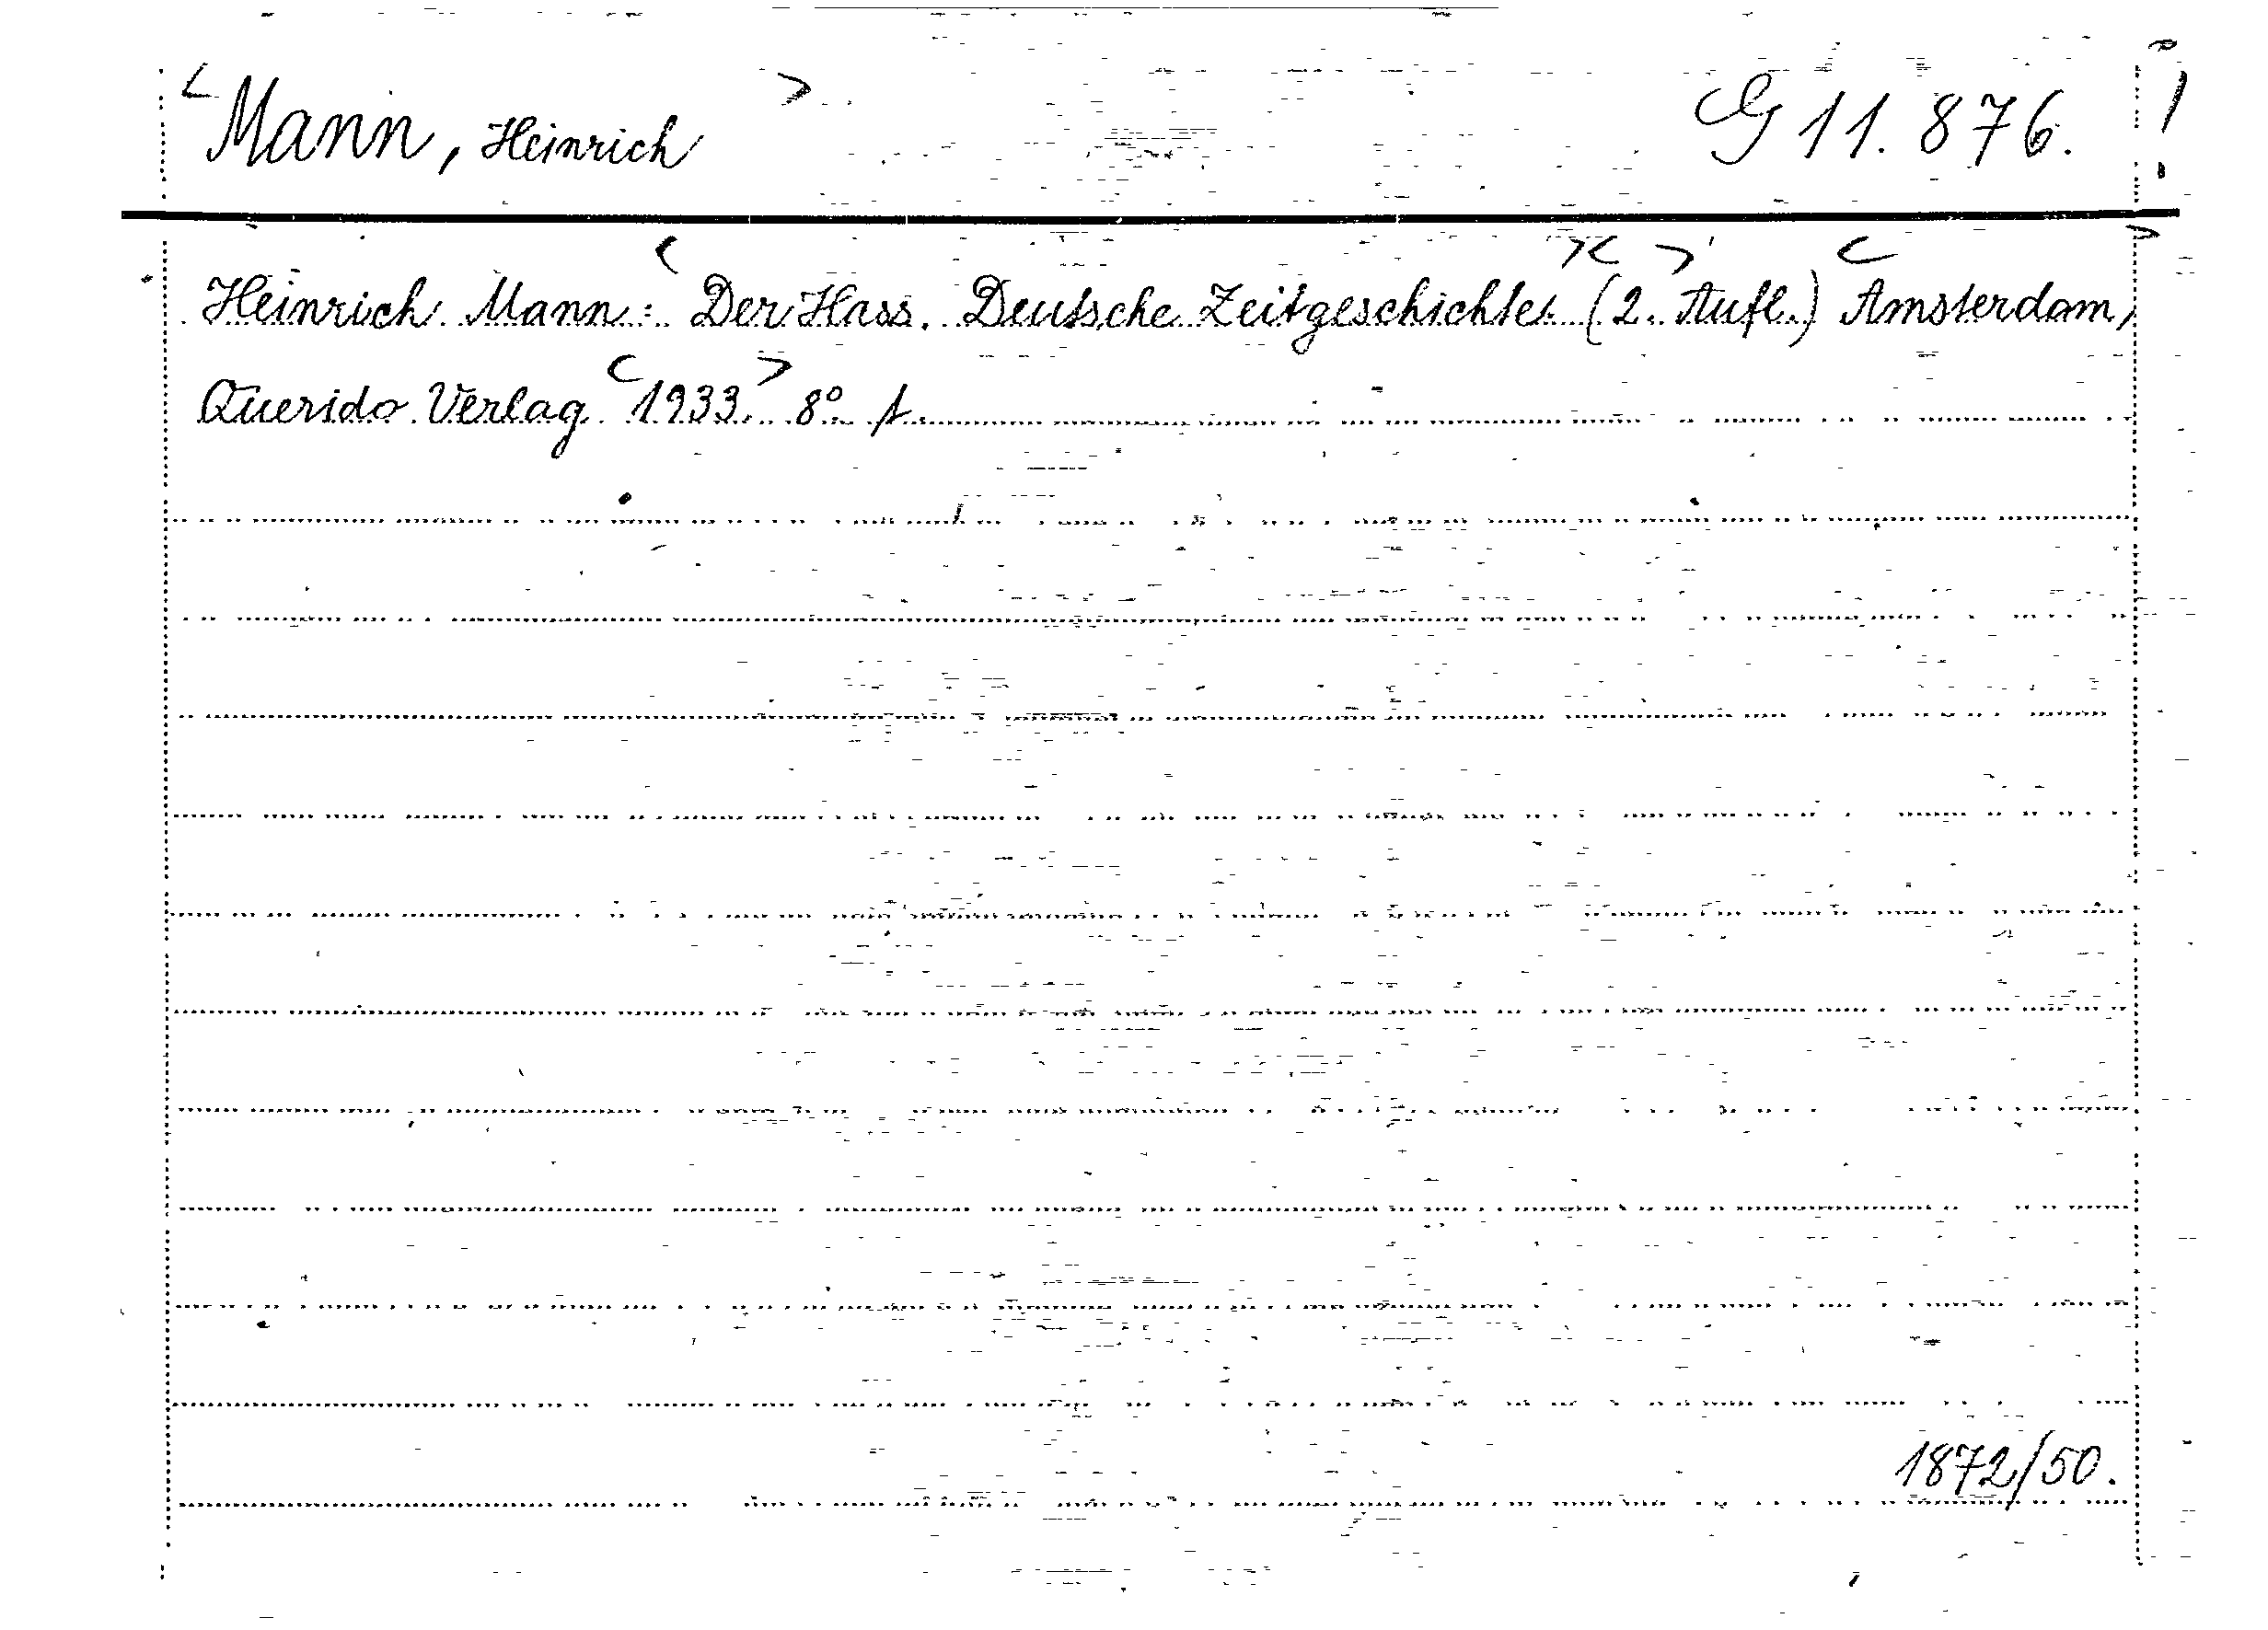 <Mann, Heinrich> G 11.876. !
Heinrich Mann: <Der Hass. Deutsche Zeitgeschichte.> <(2.> Aufl.) <Amsterdam,>
Querido Verlag <1933.> 8°
1872/50.